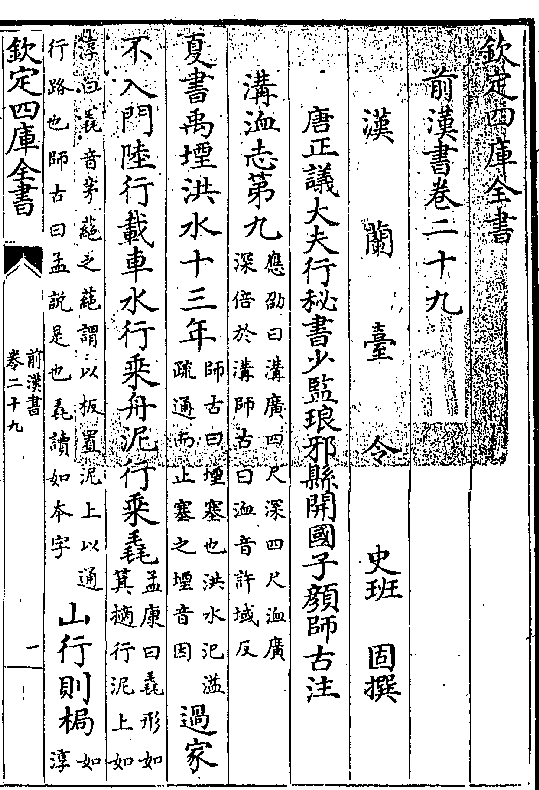 欽定四庫全書
前漢書卷二十九
漢蘭臺令史班固撰
唐正議大夫行秘書少監琅邪縣開國子顔師古注
溝洫志第九
應劭曰溝廣四尺深四尺洫廣
深倍於溝師古曰洫音許域反
夏書禹堙洪水十三年
師古曰堙塞也洪水氾溢
疏通而止塞之堙音因
過家
不入門陸行載車水行乘舟泥行乘毳
孟康曰毳形如
箕擿行泥上如
淳曰毳音茅蕝之蕝謂以板置泥上以通
行路也師古曰孟說是也毳讀如本字
山行則梮
如
淳
欽定四庫全書
前漢書
卷二十九
一